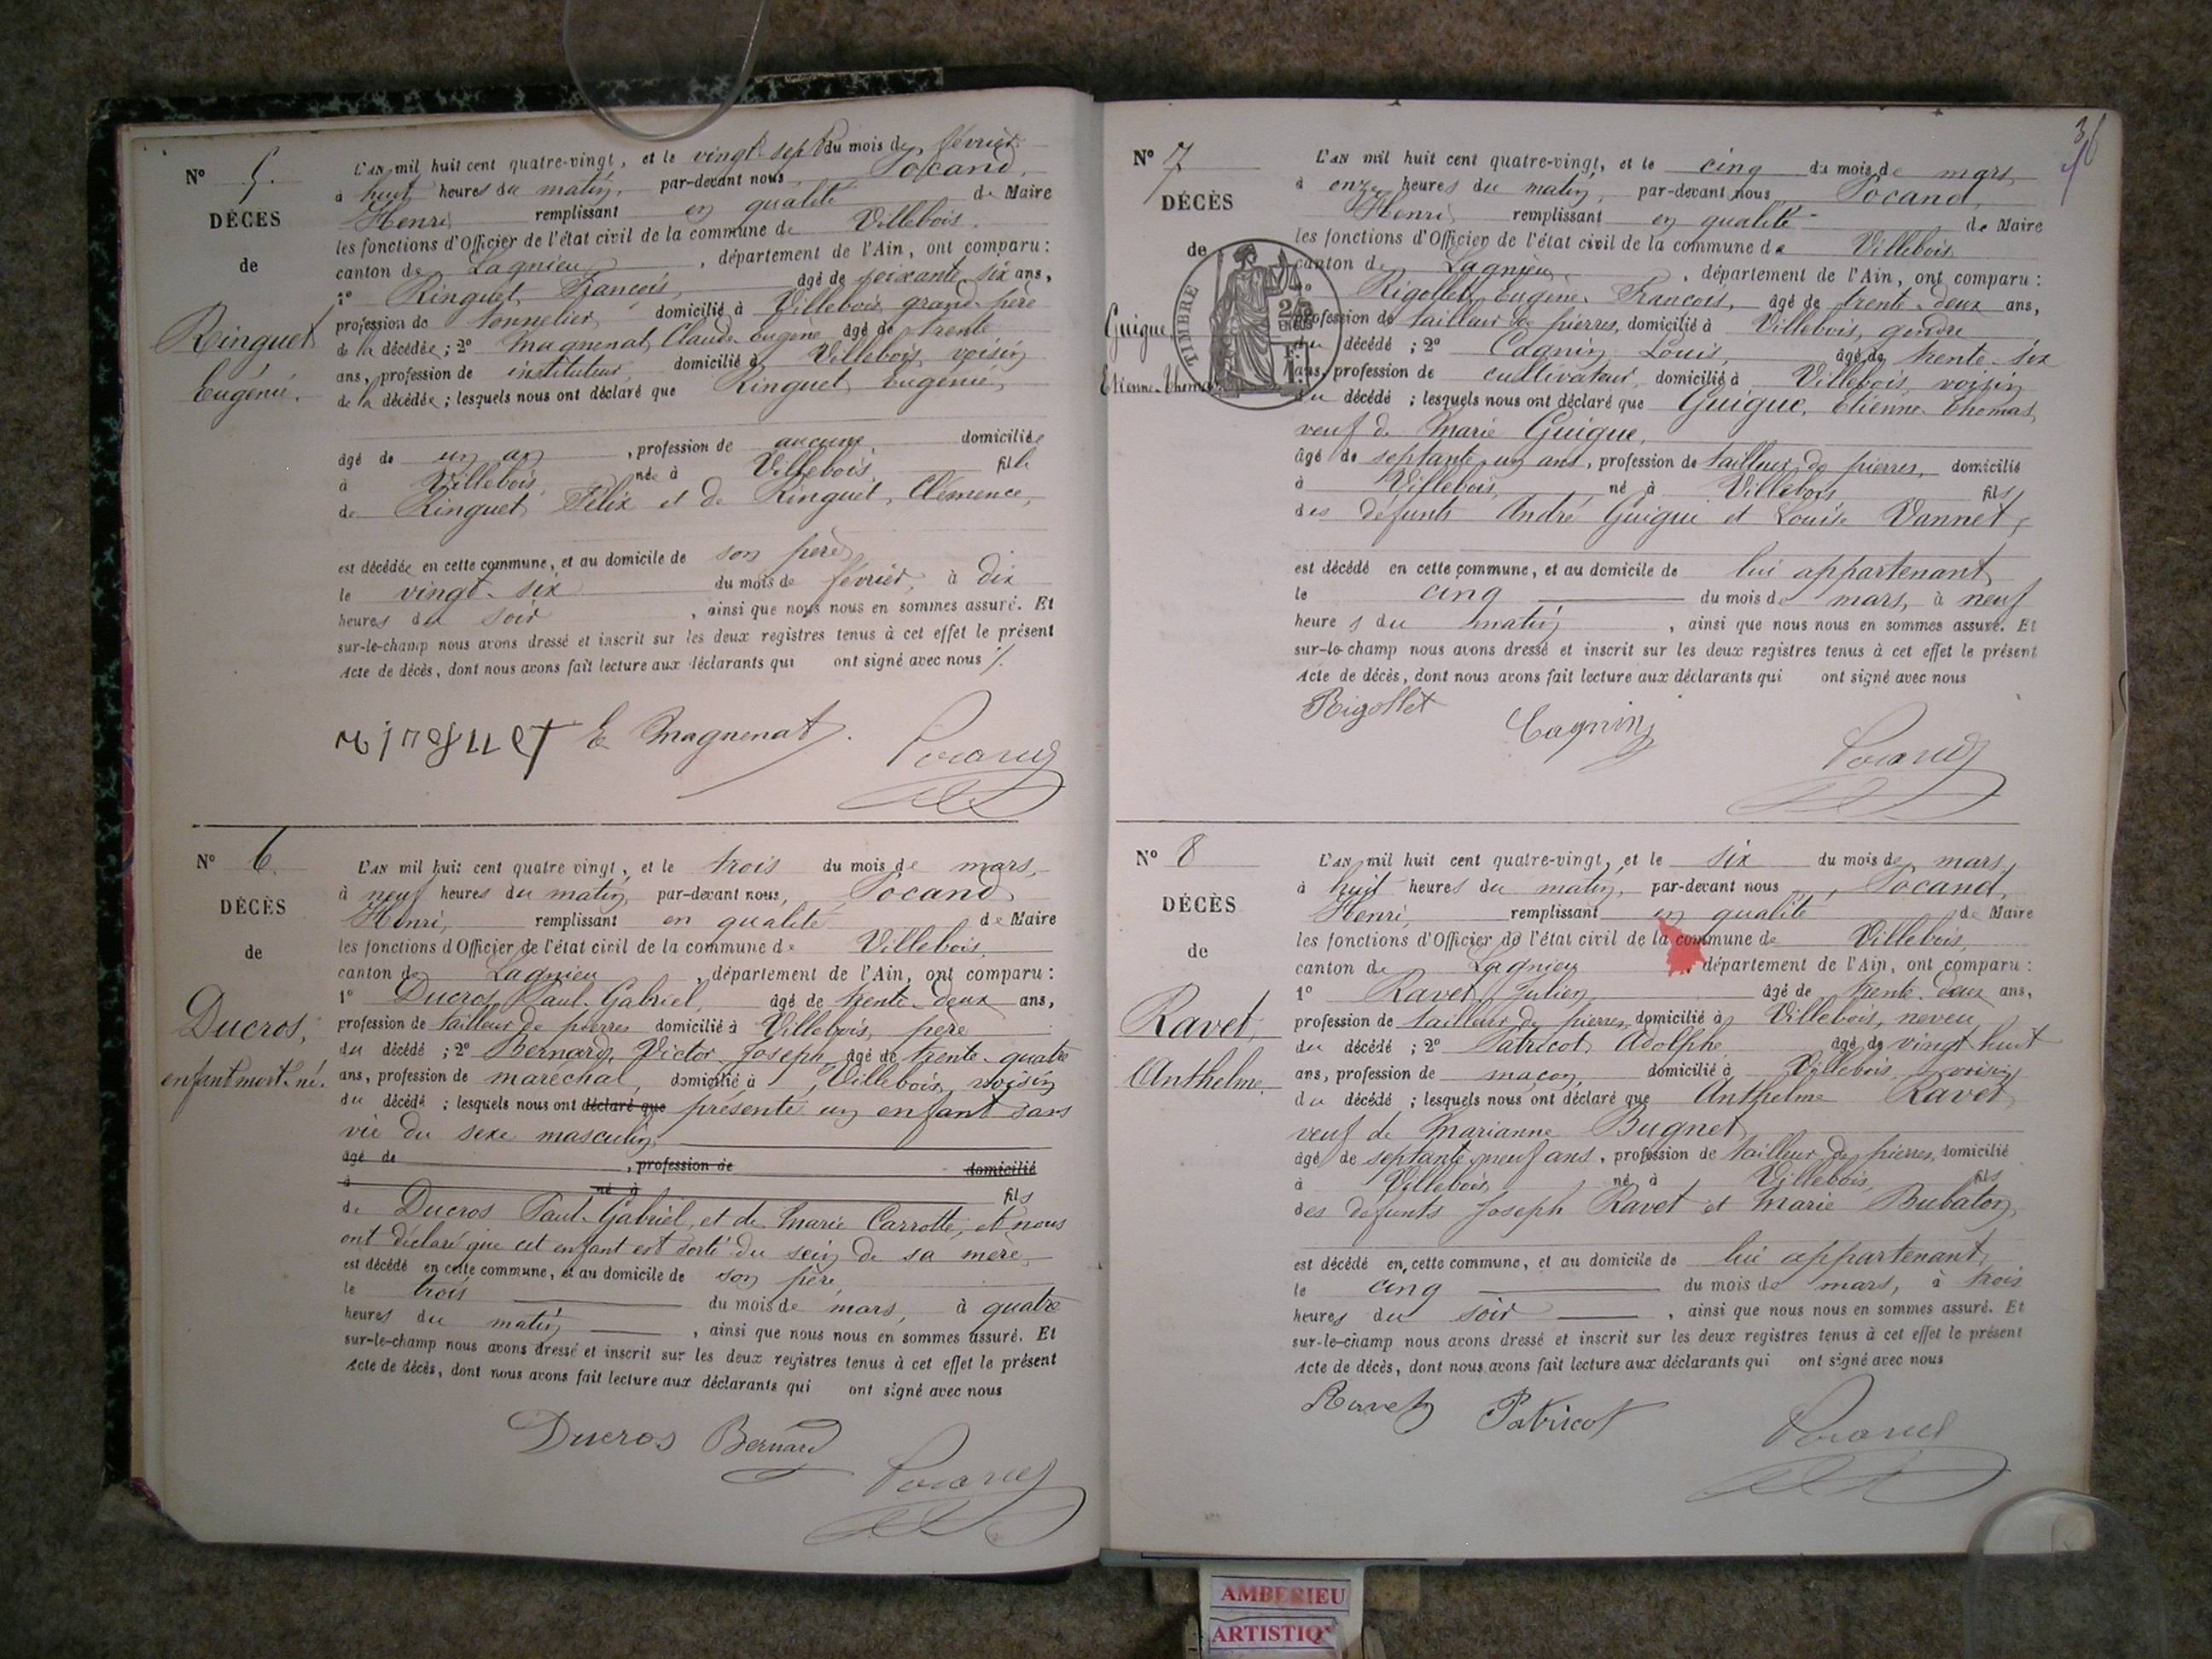 N° 5.
DÉCÈS
de
Ringuet
Eugénie.
L'AN mil huit cent quatre-vingt, et le vingt-sept du mois de février
à huit heures du matin, par-devant nous Pocand,
Henri remplissant en qualité de Maire
les fonctions d'Officier de l'état civil de la commune de Villebois.
canton de Lagnieu, département de l'Ain, ont comparu :
1° Ringuet, François, âgé de soixante-six ans,
profession de tonnelier, domicilié à Villebois, grand-père
de la décédée ; 2° Magnenat, Claude-Eugène âgé de trente
ans, profession de instituteur domicilié à Villebois, voisin
de la décédée ; lesquels nous ont déclaré que Ringuet Eugénie,
âgé de un an, profession de aucune domiciliée
à Villebois née à Villebois fille
de Ringuet, Félix et de Ringuet, Clémence,
est décédée en cette commune, et au domicile de son père
le vingt-six du mois de février, à dix
heures du soir, ainsi que nous nous en sommes assuré. Et
sur-le-champ nous avons dressé et inscrit sur les deux registres tenus à cet effet le présent
Acte de décès, dont nous avons fait lecture aux déclarants qui ont signé avec nous
ringuet E Magnenat Pocand
N° 6.
DÉCÈS
de
Ducros,
enfant mort-né.
L'AN mil huit cent quatre vingt, et le trois du mois de mars,
à neuf heures du matin, par-devant nous, Pocand
Henri, remplissant en qualité de Maire
les fonctions d'Officier de l'état civil de la commune de Villebois,
canton de Lagnieu, département de l'Ain, ont comparu :
1° Ducros, Paul-Gabriel, âgé de trente-deux ans,
profession de tailleur de pierres domicilié à Villebois, père
du décédé ; 2° Bernard, Victor-Joseph, âgé de trente-quatre
ans, profession de maréchal, domicilié à Villebois, voisin
du décédé ; lesquels nous ont déclaré que présenté un enfant sans
vie du sexe masculin,
âgé de , profession de domicilié
à né à fils
de Ducros Paul-Gabriel, et de Marie Carrotte, et nous
ont déclaré que cet enfant est sorti du sein de sa mère,
est décédé en cette commune, et au domicile de son père,
le trois du mois de mars, à quatre
heures du matin, ainsi que nous nous en sommes assuré. Et
sur-le-champ nous avons dressé et inscrit sur les deux registres tenus à cet effet le présent
Acte de décès, dont nous avons fait lecture aux déclarants qui ont signé avec nous
Ducros Bernard Pocand
36
N° 7
DÉCÈS
de
Guigue
Etienne-Thomas
TIMBRE
L'AN mil huit cent quatre-vingt, et le cinq du mois de mars,
à onze heures du matin, par-devant nous Pocand,
Henri, remplissant en qualité de Maire
les fonctions d'Officier de l'état civil de la commune de Villebois
canton de Lagnieu, département de l'Ain, ont comparu :
1° Rigollet, Eugène-François, âgé de trente-deux ans,
profession de tailleur de pierres, domicilié à Villebois, gendre
du décédé ; 2° Cagnin, Louis, âgé de trente-six
ans, profession de cultivateur, domicilié à Villebois, voisin
du décédé ; lesquels nous ont déclaré que Guigue, Etienne-Thomas,
veuf de Marie Guigue,
âgé de septante-un ans, profession de tailleur de pierres, domicilié
à Villebois, né à Villebois fils
des défunts André Guigue et Louise Vannet,
est décédé en cette commune, et au domicile de lui appartenant,
le cinq du mois de mars, à neuf
heures du matin, ainsi que nous nous en sommes assuré. Et
sur-le-champ nous avons dressé et inscrit sur les deux registres tenus à cet effet le présent
Acte de décès, dont nous avons fait lecture aux déclarants qui ont signé avec nous
Rigollet Cagnin Pocand
N° 8
DÉCÈS
de
Ravet,
Anthelme.
L'AN mil huit cent quatre-vingt, et le six du mois de mars,
à huit heures du matin, par-devant nous, Pocand,
Henri, remplissant en qualité de Maire
les fonctions d'Officier de l'état civil de la commune de Villebois,
canton de Lagnieu, département de l'Ain, ont comparu :
1° Ravet, Julien, âgé de trente-deux ans,
profession de tailleur de pierres, domicilié à Villebois, neveu
du décédé ; 2° Patricot, Adolphe, âgé de vingt huit
ans, profession de maçon, domicilié à Villebois, voisin
du décédé ; lesquels nous ont déclaré que Anthelme Ravet,
veuf de Marianne Bugnet,
âgé de septante-neuf ans, profession de tailleur de pierres, domicilié
à Villebois, né à Villebois, fils
des défunts Joseph Ravet et Marie Bubaton,
est décédé en cette commune, et au domicile de lui appartenant,
le cinq du mois de mars, à trois
heures du soir, ainsi que nous nous en sommes assuré. Et
sur-le-champ nous avons dressé et inscrit sur les deux registres tenus à cet effet le présent
Acte de décès, dont nous avons fait lecture aux déclarants qui ont signé avec nous
Ravet Patricot Pocand
AMBERIEU
ARTISTIQ